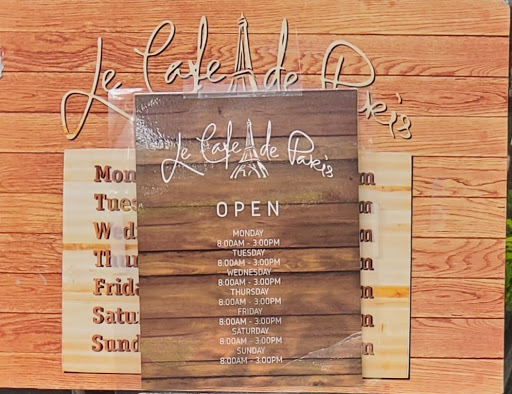 Le Cafe de Paris
Le Cafe de Paris
OPEN
MONDAY
8:00AM - 3:00PM
TUESDAY
8:00AM - 3:00PM
WEDNESDAY
8:00AM - 3:00PM
THURSDAY
8:00AM - 3:00PM
FRIDAY
8:00AM - 3:00PM
SATURDAY
8:00AM - 3:00PM
SUNDAY
8:00AM - 3:00PM
Mon m
Tues
Wed
Thur
Frida
Satu
Sund